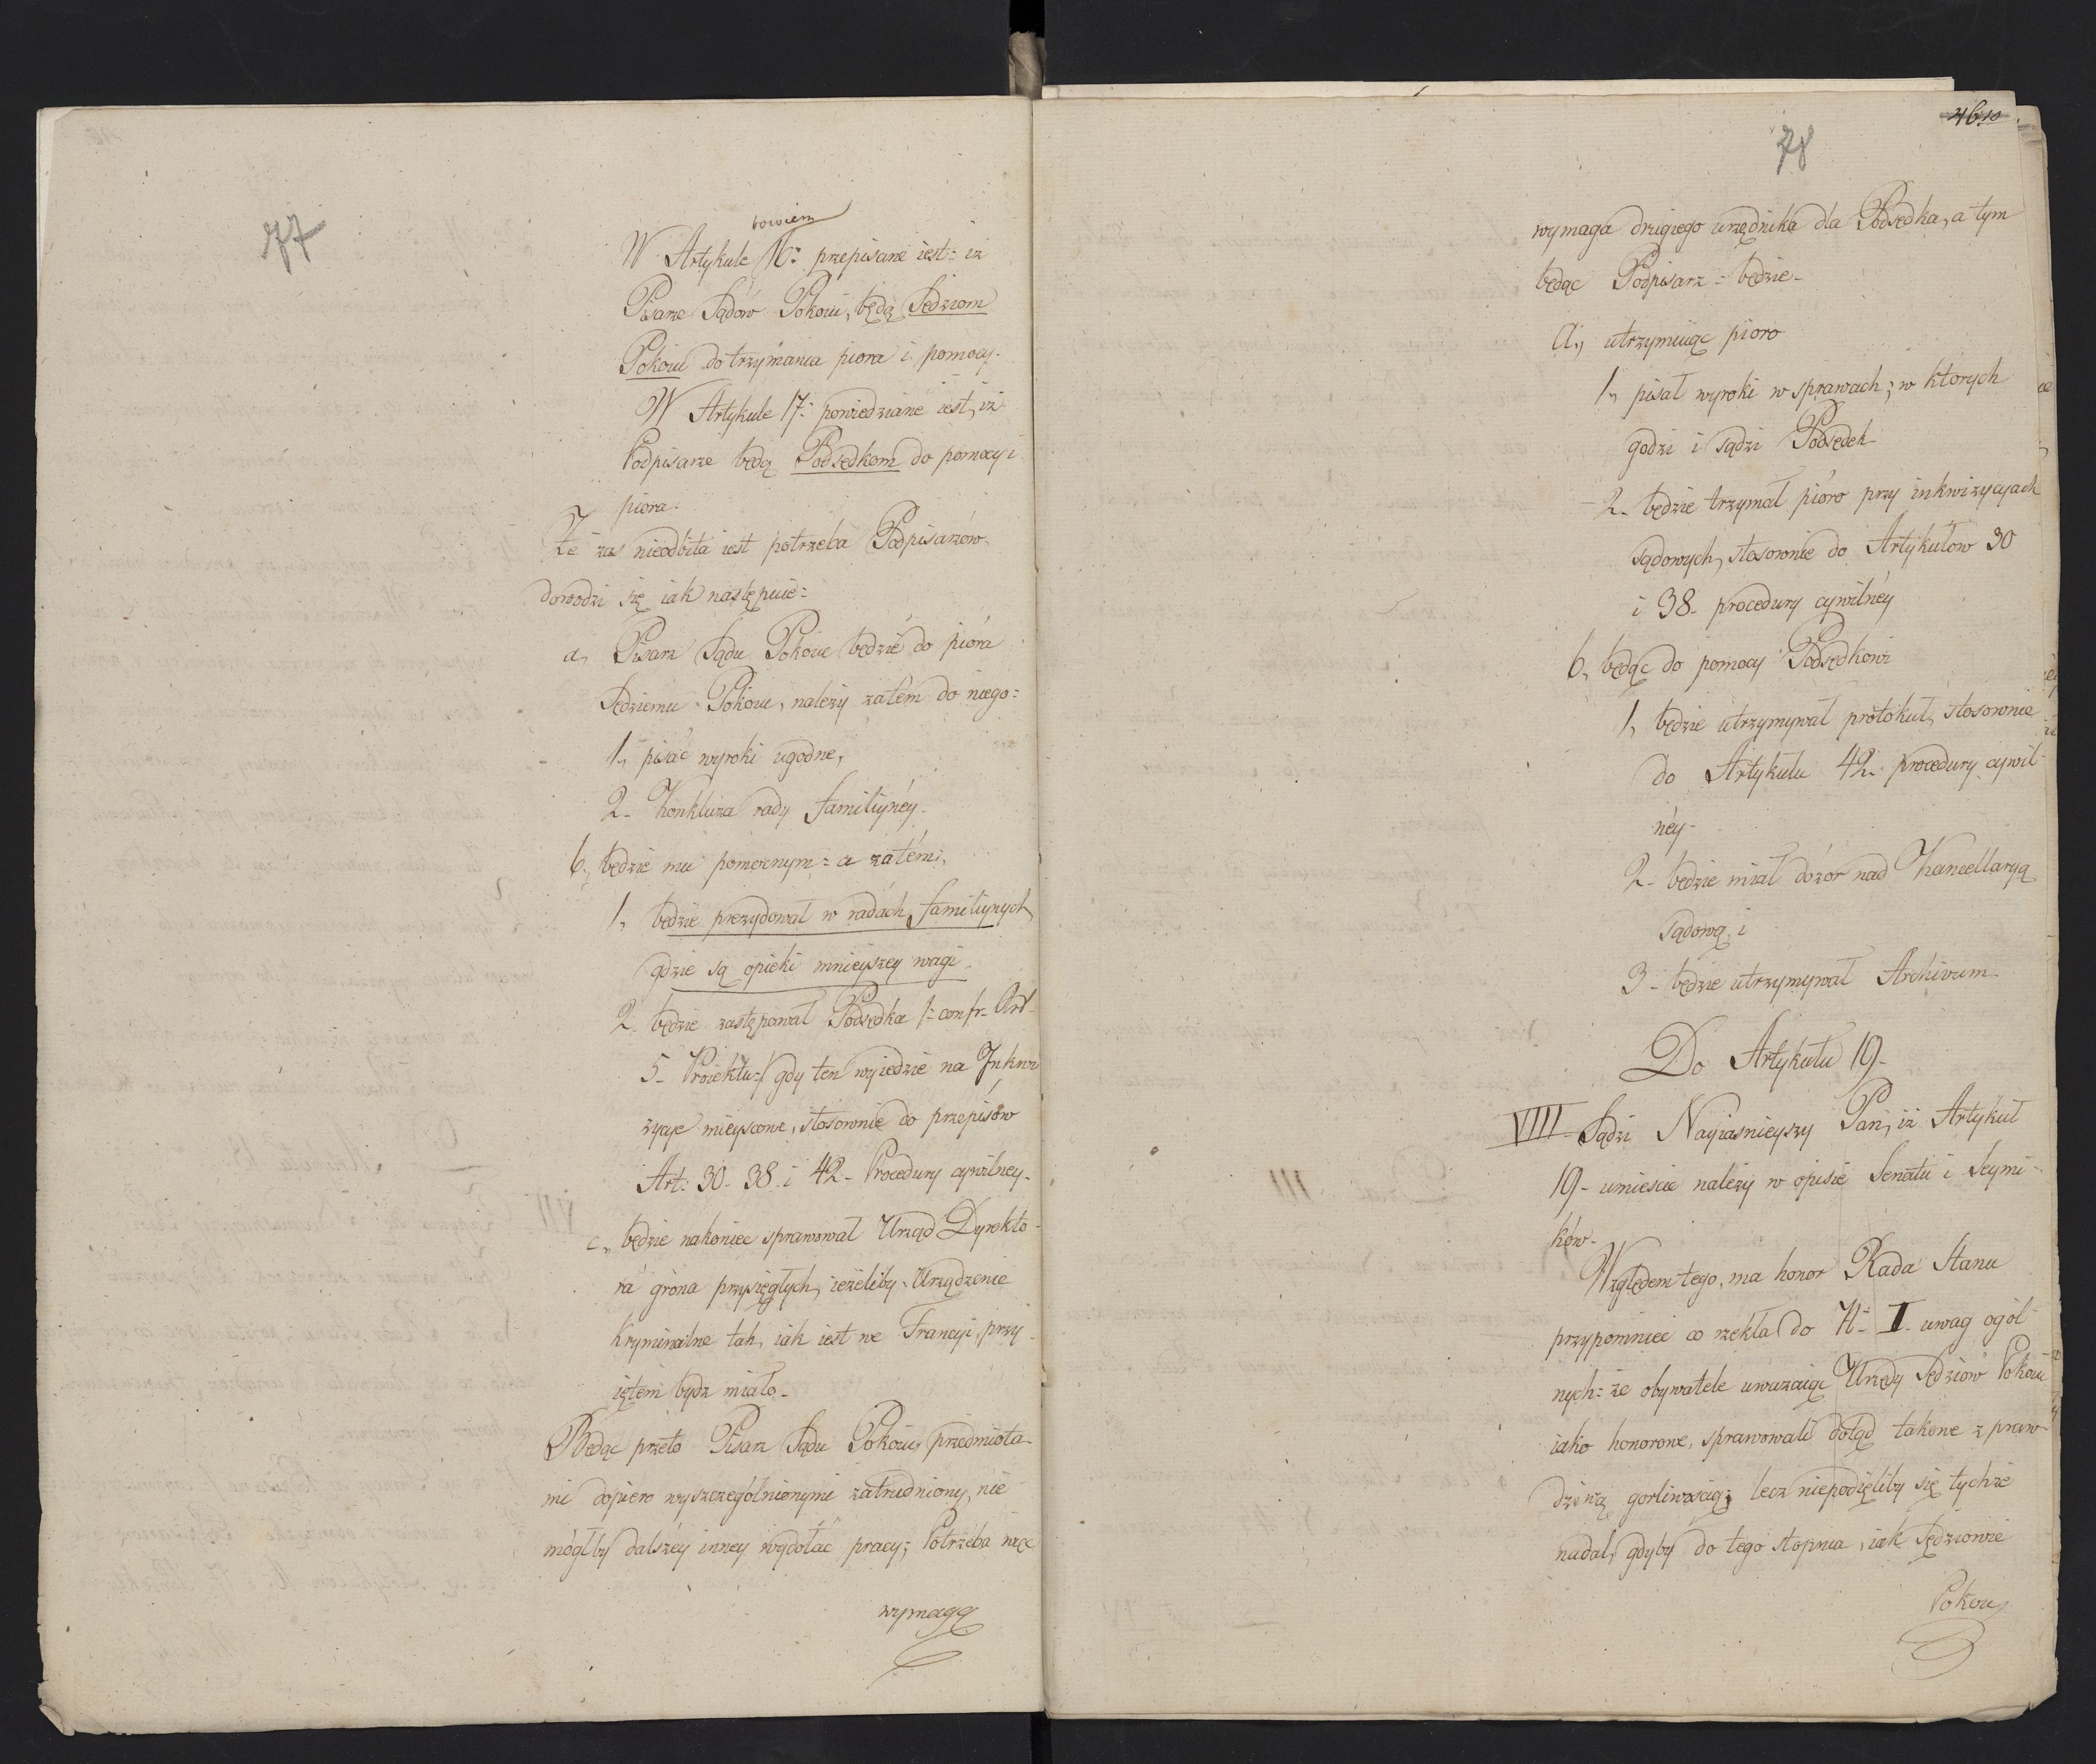 77
bowiem
W Artykule 16: przepisane iest: iż
Pisarze Sądów Pokoiu, będą Sędziom
Pokoiu do trzymania piora i pomocy.
W Artykule 17: powiedziane iest, iż
Podpisarze będą Podsędkom do pomocy i
piora.
Że zas nieodbita iest potrzeba Podpisarzów.
dowodzi się iak następuie:
a, Pisarz Sądu Pokoiu będzie do pióra
Sędziemu Pokoiu, należy zatém do niego:
1, pisać wyroki ugodne,
2. Konkluza rady familiynéy.
b, będzie mu pomocnym: a zatém:,
1, będzie prezydował w radach familiynych
gdzie są opieki mnieyszey wagi.
2. będzie zastępował Podsędka /: confr. Art.
5. Proiektu:/ gdy ten wyiedzie na Inkwi
zycye mieyscowe, stosownie do przepisów
Art: 30. 38. i 42. Procedury cywilney.
c,, będzie nakoniec sprawował Urząd Dyrekto-
ra grona przysięgłych, ieżeliby Urządzenie
Kryminalne tak, iak iest we Francyi, przy-
iętem bydz miało.
Będąc przeto Pisarz Sądu Pokoiu, przedmiota-
mi dopiero wyszczególnionymi zatrudniony, nie
mógłby dalszéy inney wydołać pracy; Potrzeba więc
wymaga
46.10
78
wymaga drugiego urzędnika dla Podsędka, a tym
będąc Podpisarz: będzie.
a,, utrzymuiąc pioro
1, pisał wyroki w sprawach; w których
godzi i sądzi Podsędek.
2. będzie trzymał pióro przy inkwizycyach
sądowych, stosownie do Artykułow 30
i 38. procedury cywilnéy
b, będąc do pomocy Podsędkowi
1, będzie utrzymywał protokuł, stosownie
do Artykułu 42. procedury cywil-
néy.
2. będzie miał dozór nad Kancellaryą
sądową, i
3. będzie utrzymywał Archivum.
Do Artykułu 19.
VIIII. Sądzi Nayiasnieyszy Pan, iż Artykuł
19. umiescic należy w opisie Senatu i Seymi-
ków.
Względem tego, ma honor Rada Stanu
przypomniec co rzekła do N: I. uwag ogól-
nych: że obywatele uważaiąc Urzędy Sędziów Pokoiu
iako honorowe, sprawowali dotąd takowe z praw-
dziwą gorliwoscią; lecz niepodięliby się tychże
nadal, gdyby do tego stopnia, iak Sędziowie
Pokoiu